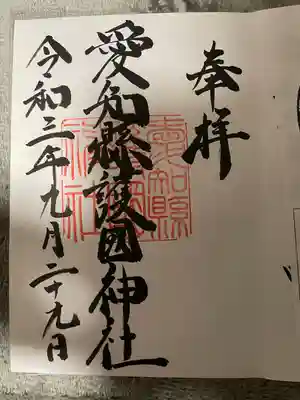 奉拝
愛知縣護國神社
愛知縣護國神社
令和三年九月二十九日